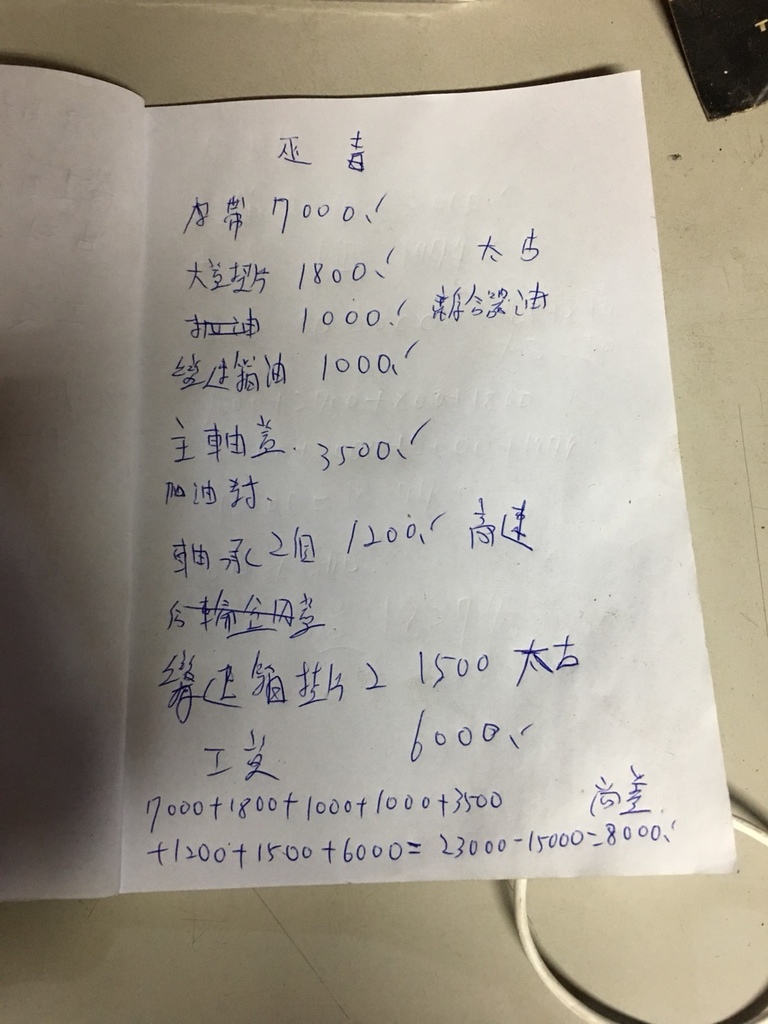 巫毒
皮帶 7000.
大蓋墊片 1800. 太古
加油 1000. 離合器油
變速箱油 1000.
主軸蓋. 3500.
加油封.
軸承2個 1200. 高速
變速箱墊片2 1500 太古
工資 6000.
7000+1800+1000+1000+3500 尚差
+1200+1500+6000=23000-15000=8000.